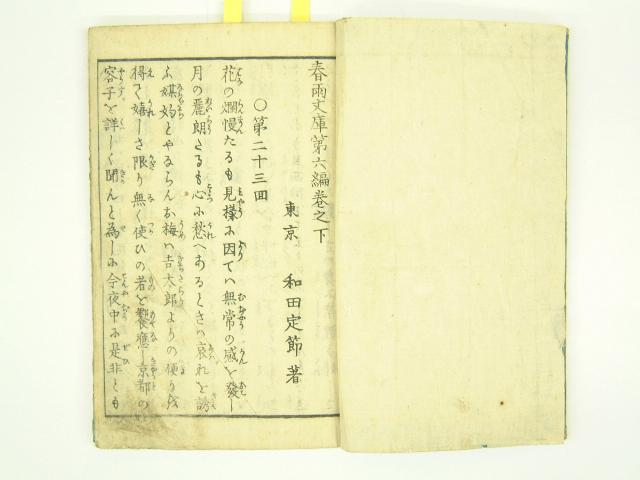 春雨文庫第六編巻之下
東京 和田定節著
〇第二十三回
花の爛慢たるも見様に因ては無常の感を發し
月の麗朗たるも心に愁へあるときは哀れを誘
ふ媒妁とやならんお梅は吉太郎よりの便りを
得て嬉しさ限り無く使ひの者を饗應し京都の
容子を詳しく聞んと為しに今夜中に是非とも